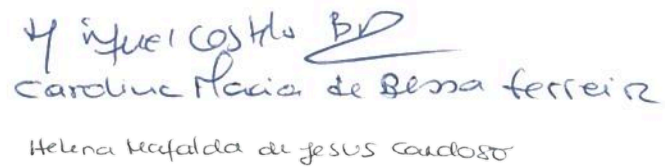 Miguel Costa
Carolina Maria de Bessa Ferreira
Helena Mafalda de Jesus Cardoso